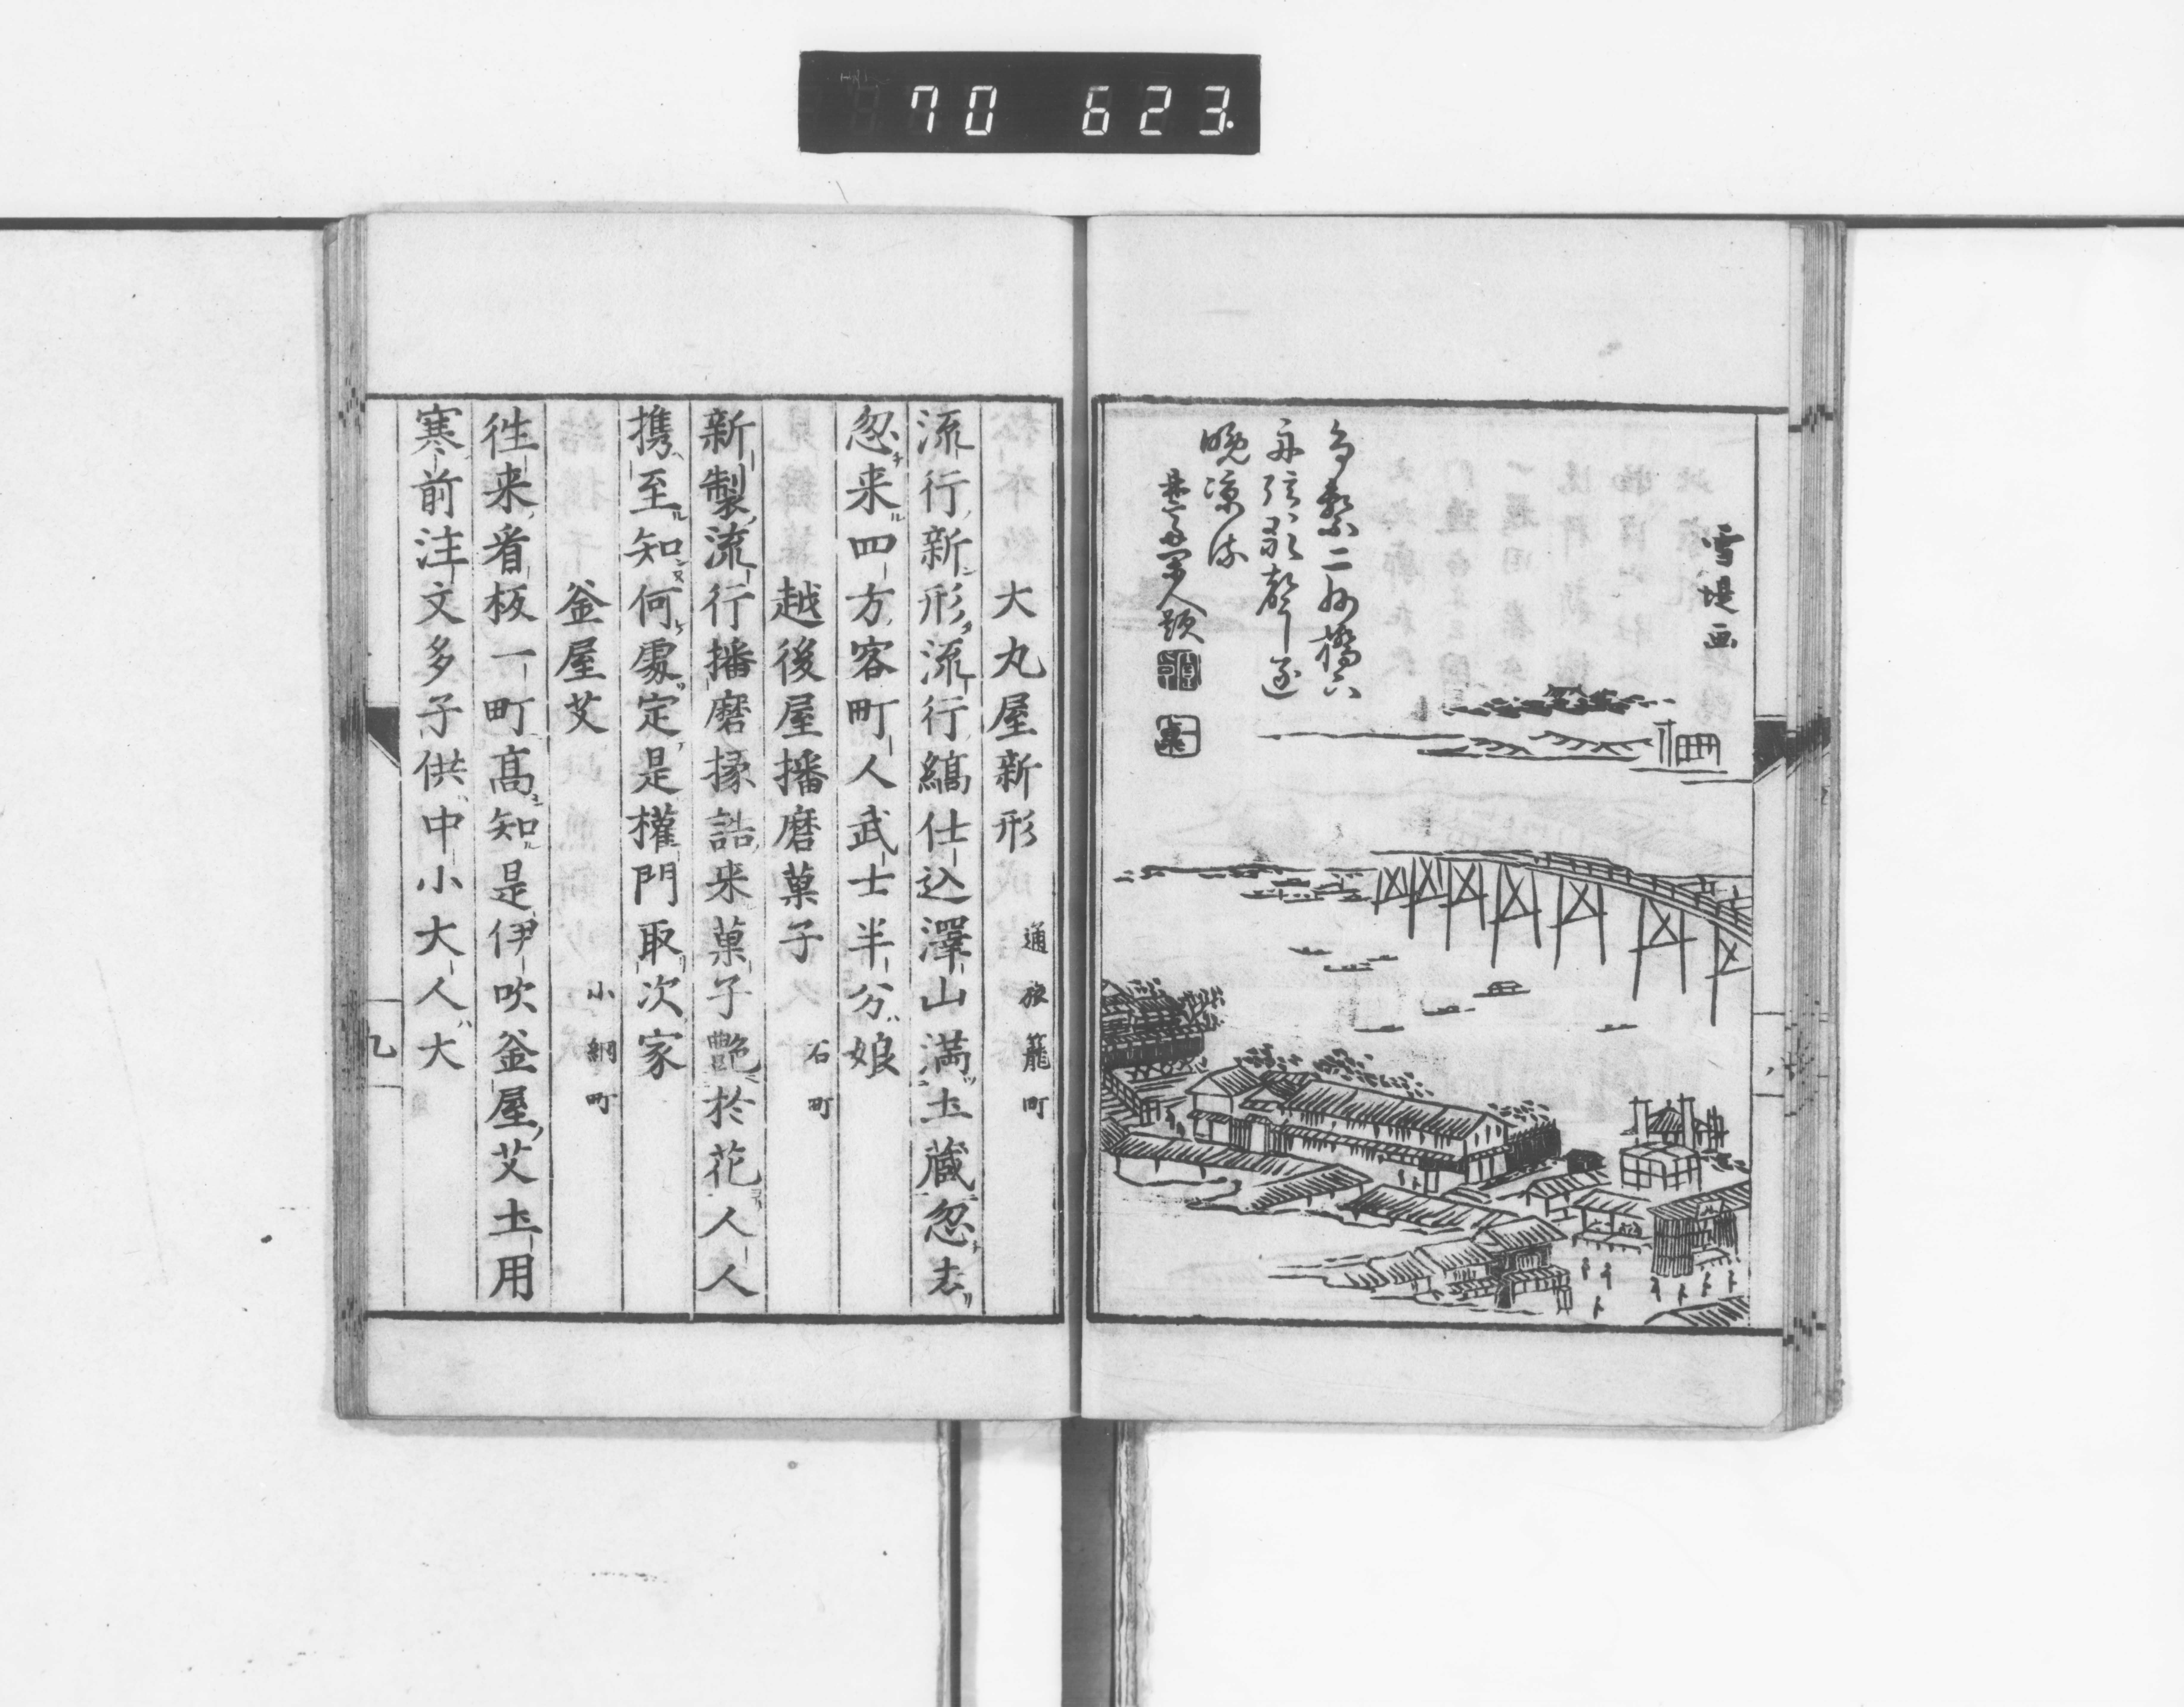 70 623
雪堤画
二州橋
晩凉
人題
大丸屋新形 通旅籠町
流行新形流行縞仕込澤山満土蔵忽去
忽来四方客町人武士半分娘
越後屋播磨菓子 石町
新製流行播磨掾詰来菓子艶於花人人
携至知何處定是權門取次家
釜屋艾 小網町
徃来看板一町高知是伊吹釜屋艾土用
寒前注文多子供中小大人大
九